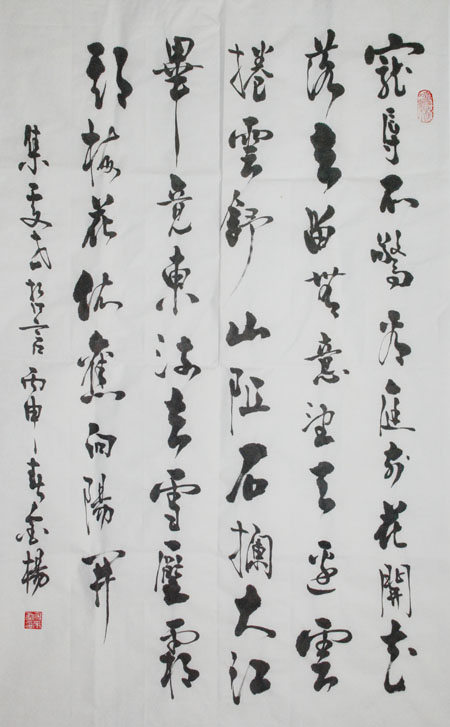 寵辱不驚看庭前花開花
落去留無意望天邊雲
捲雲舒山阻石攔大江
畢竟東流去雪壓霜
欺梅花依舊向陽開
集言丙申春金楊